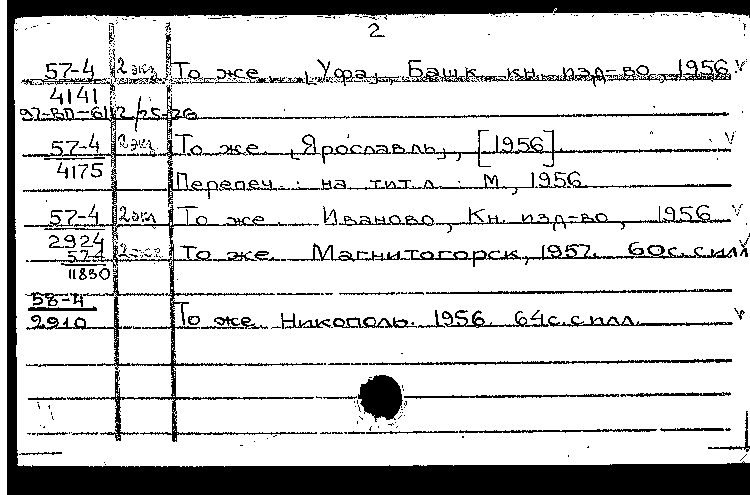 2
57-4 2 экз То же. [Уфа], Башк. кн. изд-во, 1956 V
4141
97-ВП-61 2/25-26
57-4 2 экз То же. [Ярославль], [1956]. V
4175 Перепеч.: на тит. л. : М., 1956
57-4 2 экз То же. Иваново, Кн. изд-во, 1956 V
2924
57-4 2 экз То же. Магнитогорск, 1957. 60с. с илл V
11830
58-4
2910 То же. Никополь. 1956. 64с. с илл. V